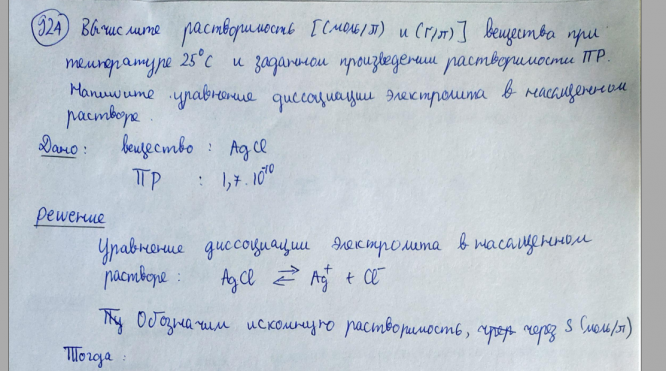 924 Вычислите растворимость [(моль/л) и (г/л)] вещества при
температуре 25°C и заданном произведении растворимости ПР.
Напишите уравнение диссоциации электролита в насыщенном
растворе.
Дано: вещество : AgCl
ПР : 1,7·10⁻¹⁰
Решение
Уравнение диссоциации электролита в насыщенном
растворе : AgCl ⇌ Ag⁺ + Cl⁻
Обозначим искомую растворимость, через S (моль/л)
Тогда :